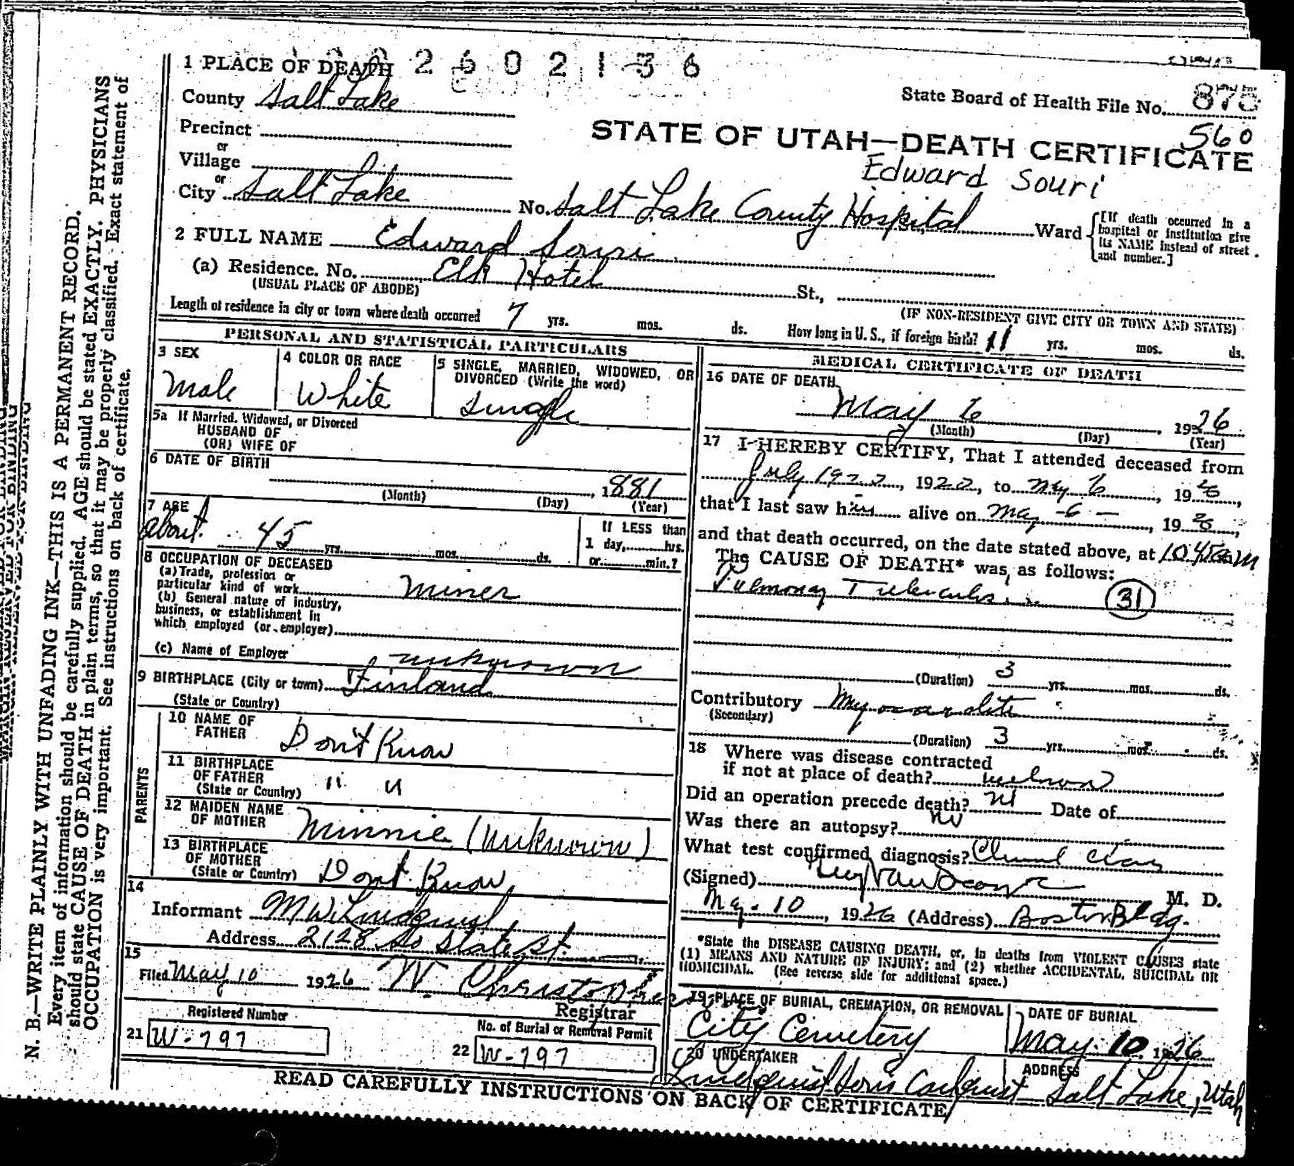 2602136
1 PLACE OF DEATH
County Salt Lake
State Board of Health File No. 875
560
Precinct
or
Village
or
City Salt Lake
STATE OF UTAH—DEATH CERTIFICATE
Edward Souri
No. Salt Lake County Hospital Ward
[If death occurred in a
hospital or institution give
its NAME instead of street
and number.]
2 FULL NAME Edward Souri
(a) Residence. No. Elk Hotel St.,
(USUAL PLACE OF ABODE)
(IF NON-RESIDENT GIVE CITY OR TOWN AND STATE)
Length of residence in city or town where death occurred 7 yrs. mos. ds. How long in U. S., if foreign birth? 11 yrs. mos. ds.
PERSONAL AND STATISTICAL PARTICULARS
3 SEX
Male
4 COLOR OR RACE
White
5 SINGLE, MARRIED, WIDOWED, OR
DIVORCED (Write the word)
Single
5a If Married, Widowed, or Divorced
HUSBAND OF
(OR) WIFE OF
6 DATE OF BIRTH
1881
(Month) (Day) (Year)
7 AGE
about 45 yrs. mos. ds.
If LESS than
1 day, hrs.
or min.?
8 OCCUPATION OF DECEASED
(a) Trade, profession or
particular kind of work Miner
(b) General nature of industry,
business, or establishment in
which employed (or employer)
(c) Name of Employer unknown
9 BIRTHPLACE (City or town) Finland
(State or Country)
PARENTS
10 NAME OF
FATHER Dont Know
11 BIRTHPLACE
OF FATHER
(State or Country) " "
12 MAIDEN NAME
OF MOTHER Minnie (unknown)
13 BIRTHPLACE
OF MOTHER
(State or Country) Dont Know
14
Informant M W Lindquist
Address 2128 So State St.
15
Filed May 10 1926 W. Christopherson
Registrar
Registered Number
21 W-797
No. of Burial or Removal Permit
22 W-797
MEDICAL CERTIFICATE OF DEATH
16 DATE OF DEATH
May 6, 1926
(Month) (Day) (Year)
17 I HEREBY CERTIFY, That I attended deceased from
July 1922, 1922, to May 6, 1926,
that I last saw him alive on May -6-, 1926,
and that death occurred, on the date stated above, at
The CAUSE OF DEATH* was, as follows:
Pulmonary Tuberculosis 31
(Duration) 3 yrs. mos. ds.
Contributory Myocarditis
(Secondary)
(Duration) 3 yrs. mos. ds.
18 Where was disease contracted
if not at place of death? unknown
Did an operation precede death? no Date of
Was there an autopsy? no
What test confirmed diagnosis?
(Signed) M. D.
May. 10, 1926 (Address) Boston Bldg.
*State the DISEASE CAUSING DEATH, or, in deaths from VIOLENT CAUSES state
(1) MEANS AND NATURE OF INJURY; and (2) whether ACCIDENTAL, SUICIDAL OR
HOMICIDAL. (See reverse side for additional space.)
19 PLACE OF BURIAL, CREMATION, OR REMOVAL
City Cemetery
DATE OF BURIAL
May 10 1926
20 UNDERTAKER
Lindquist Sons
ADDRESS
Salt Lake, Utah
READ CAREFULLY INSTRUCTIONS ON BACK OF CERTIFICATE
N. B.—WRITE PLAINLY WITH UNFADING INK—THIS IS A PERMANENT RECORD.
Every item of information should be carefully supplied. AGE should be stated EXACTLY. PHYSICIANS
should state CAUSE OF DEATH in plain terms, so that it may be properly classified. Exact statement of
OCCUPATION is very important. See instructions on back of certificate.